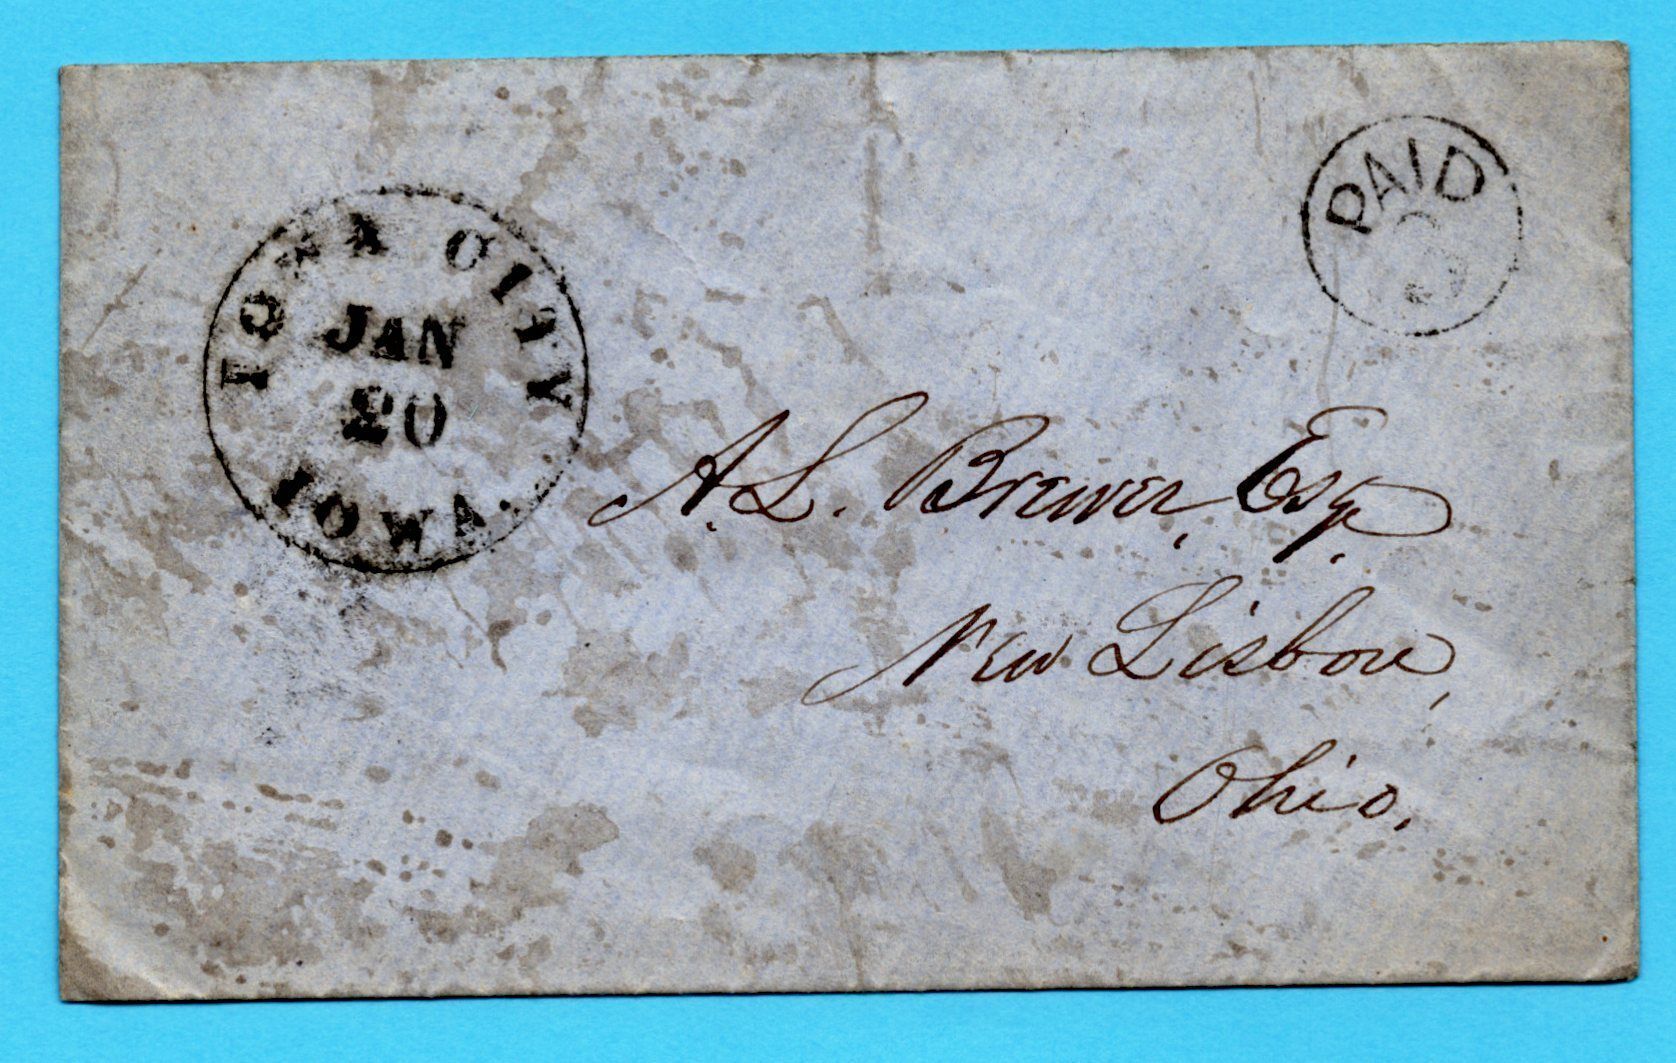 IOWA CITY
JAN
20
IOWA.
PAID
3
A. L. Brewer, Esq.
New Lisbon,
Ohio.